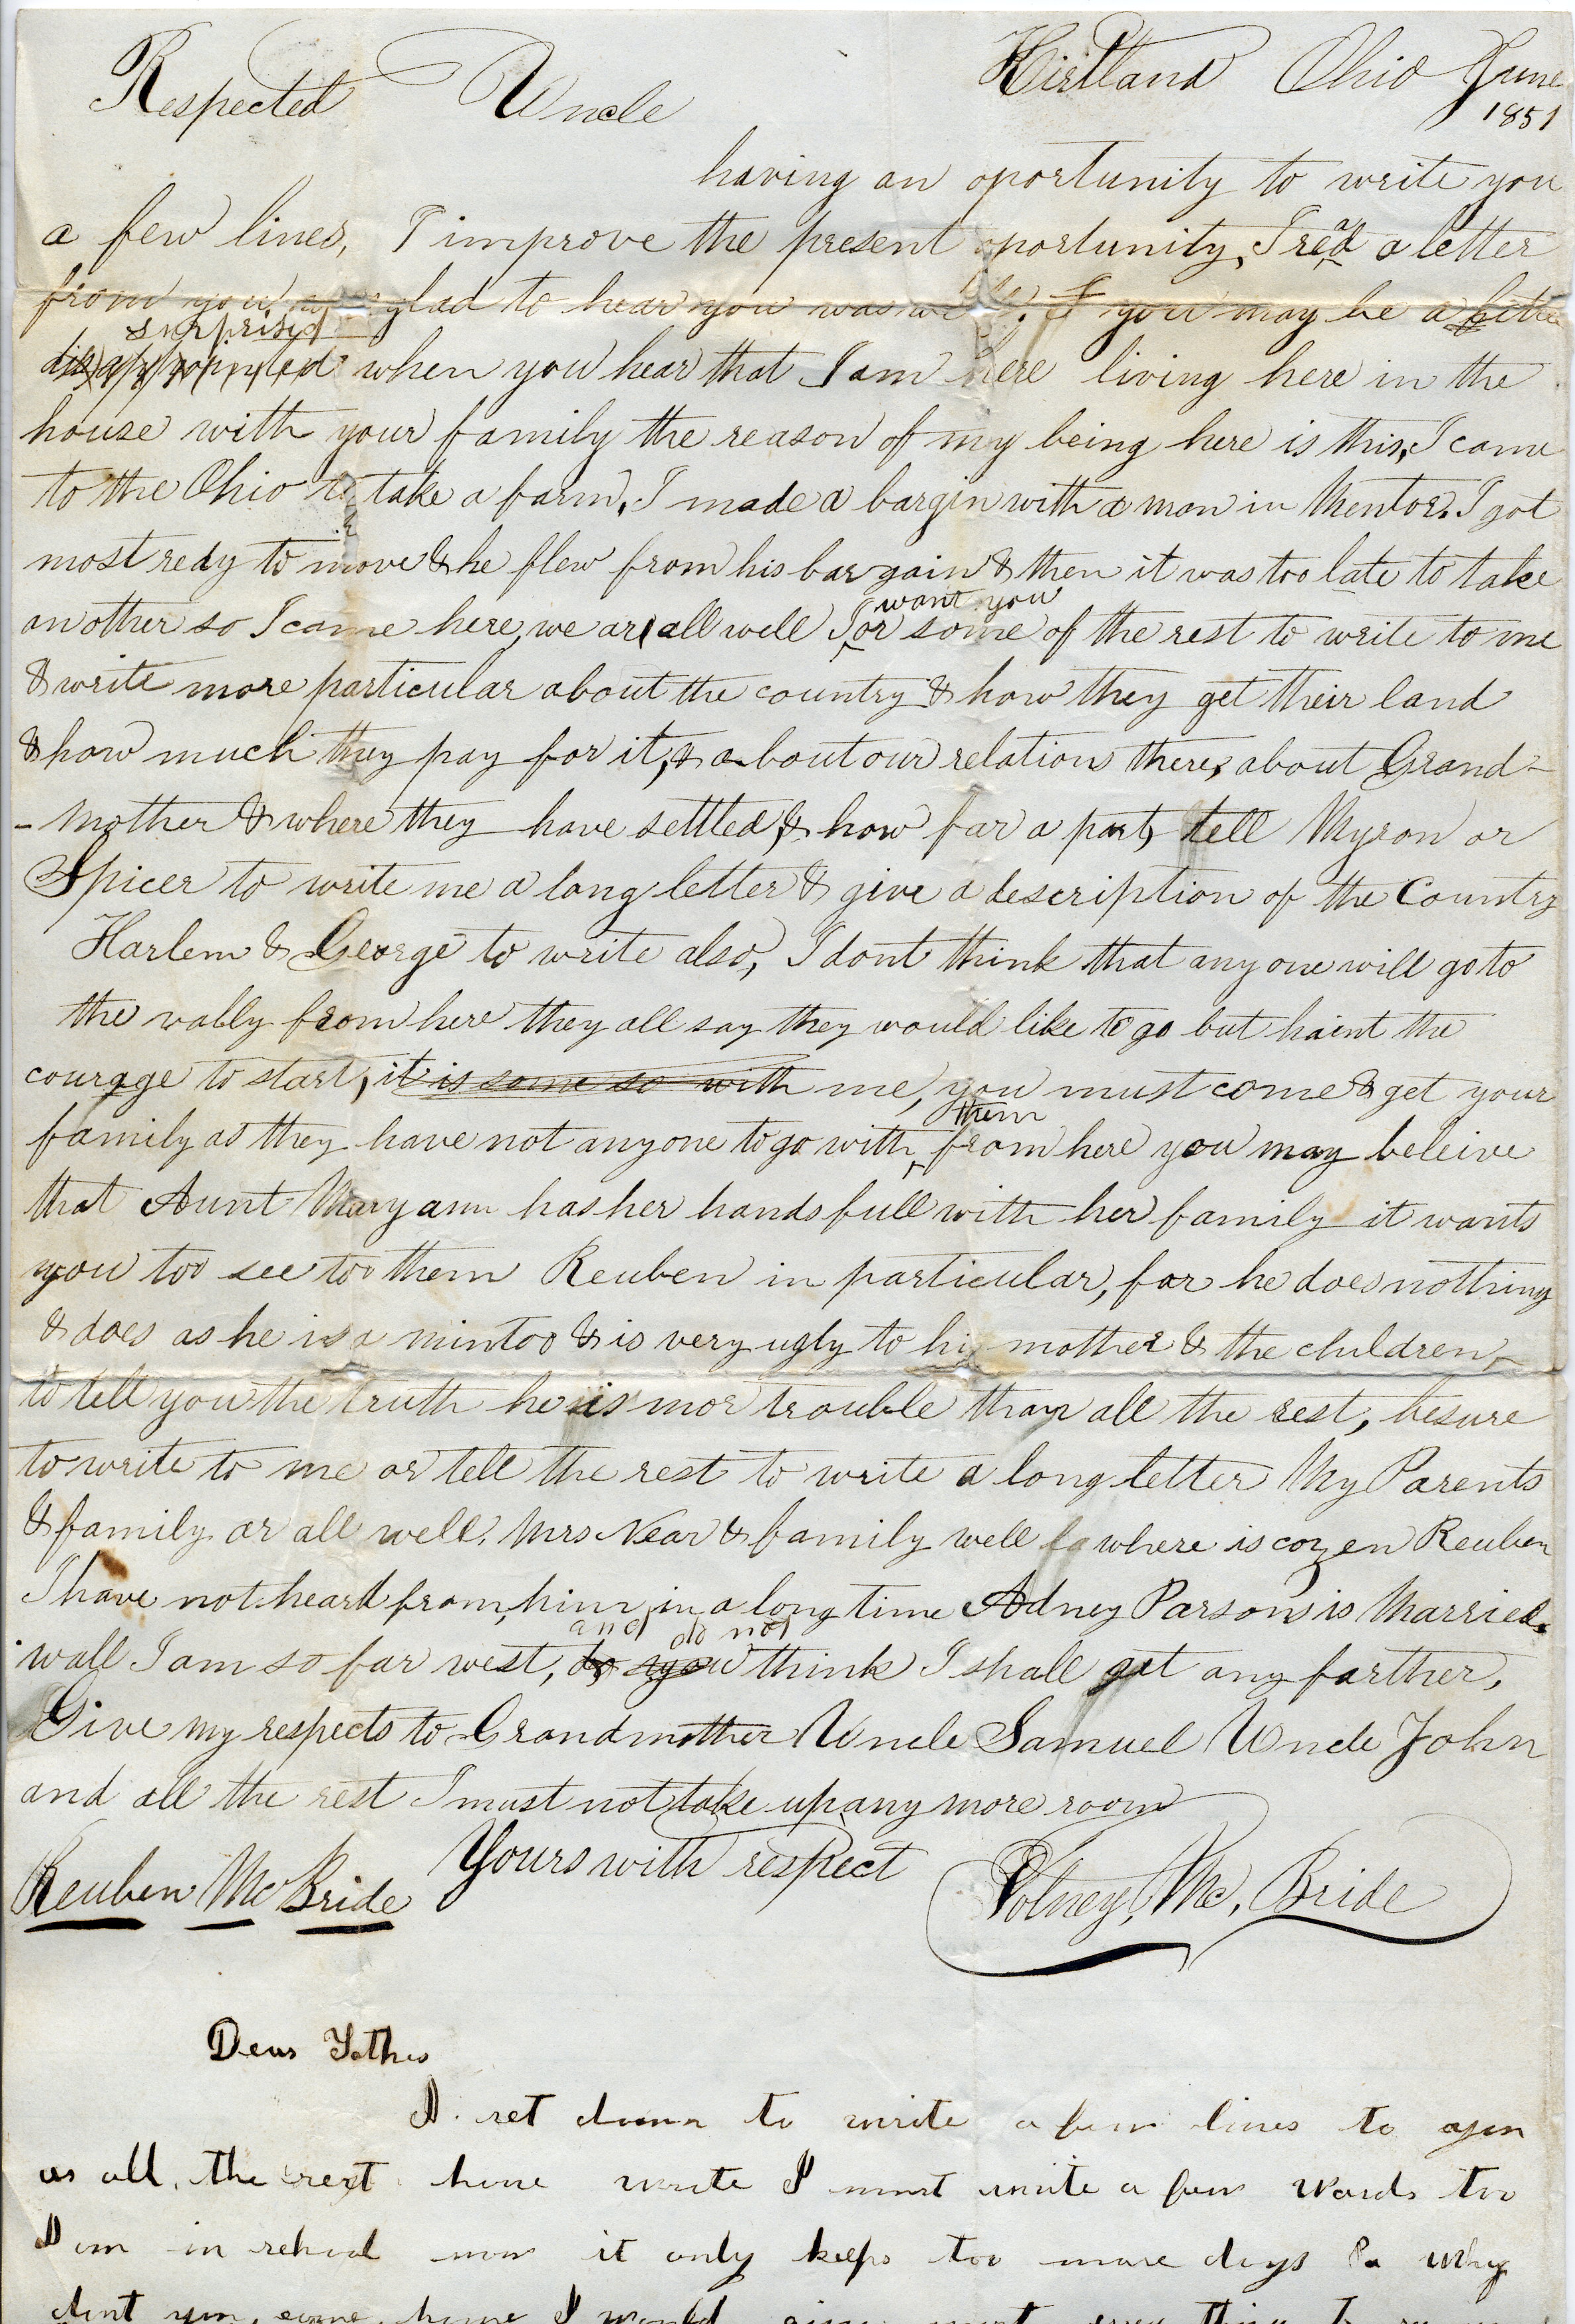 Respected Uncle Kirtland Ohio June
1851
having an oportunity to write you
a few lines, I improve the present oportunity, I read a letter
from you glad to hear you was well. I you may be a little
surprised
disappointed when you hear that I am here living here in the
house with your family the reason of my being here is this, I came
to the Ohio to take a farm, I made a bargin with a man in Mentor. I got
most redy to move & he flew from his bargain & then it was too late to take
want you
another so I came here, we are all well I or some of the rest to write to me
& write more particular about the country & how they get their land
& how much they pay for it, & about our relation there, about Grand-
-mother & where they have settled, & how far a part, tell Myron or
Spicer to write me a long letter & give a description of the Country
Harlem & George to write also, I dont think that any one will go to
the vally from here they all say they would like to go but haint the
courage to start, it is some so with me, you must come & get your
them
family as they have not anyone to go with from here you may beleive
that Aunt Mary ann has her hands full with her family it wants
you too see too them Reuben in particular, for he does nothing
& does as he is a mintoo & is very ugly to his mother & the children,
to tell you the truth he is mor trouble than all the rest, besure
to write to me or tell the rest to write a long letter My Parents
& family ar all well. Mrs Near & family well where is cozen Reuben
I have not heard from him in a long time Adney Parsons is Married.
and do not
wall I am so far west, do you think I shall get any farther,
Give my respects to Grandmother Uncle Samuel Uncle John
and all the rest I must not take up any more room
Yours with respect
Reuben McBride Volney, Mc, Bride
Dear Father
I set down to write a few lines to you
as all, the rest have wrote I must write a few words too
I am in school now it only keeps too more days Pa why
dont you, come, home I would give most every thing to